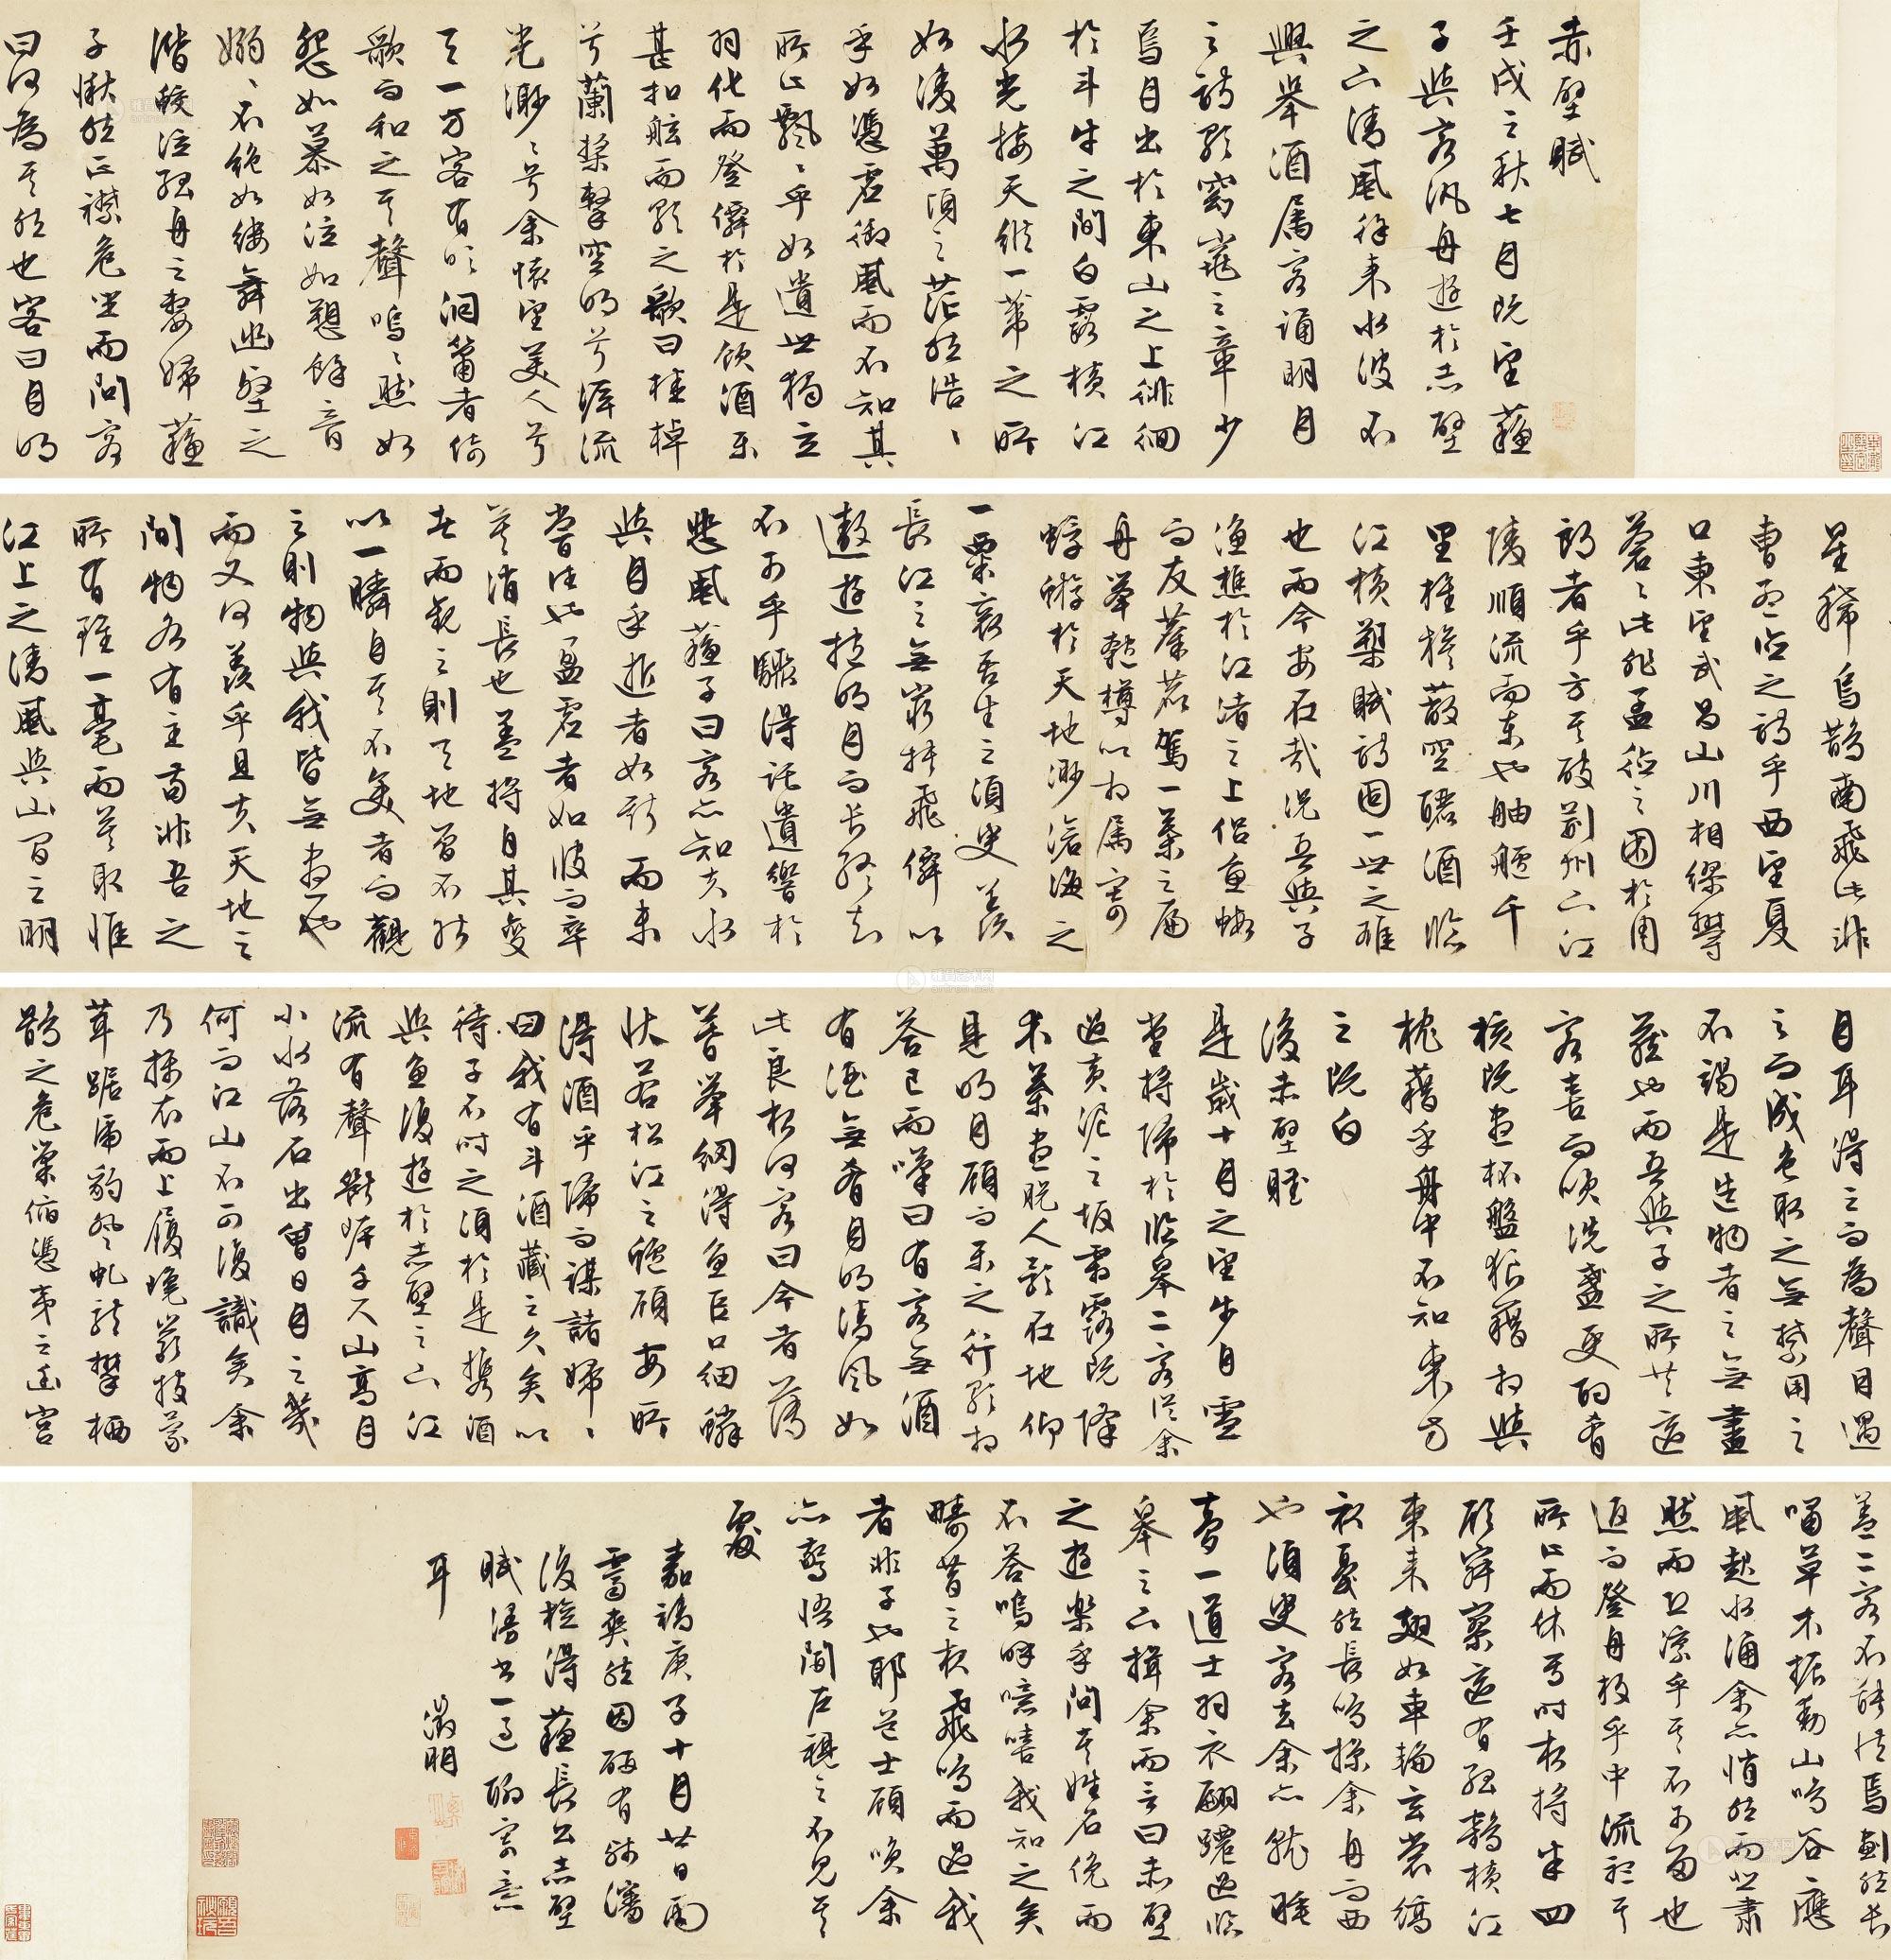 赤壁賦
壬戌之秋七月既望蘇
子與客汎舟遊於赤壁
之下清風徐來水波不
興舉酒屬客誦明月
之詩歌窈窕之章少
焉月出於東山之上徘徊
於斗牛之間白露橫江
水光接天縱一葦之所
如凌萬頃之茫然浩〻
乎如憑虛御風而不知其
所止飄〻乎如遺世獨立
羽化而登僊於是飲酒樂
甚扣舷而歌之歌曰桂棹
兮蘭槳擊空明兮泝流
光渺〻兮余懷望美人兮
天一方客有吹洞簫者倚
歌而和之其聲嗚〻然如
怨如慕如泣如愬餘音
嫋〻不絕如縷舞幽壑之
潛蛟泣孤舟之嫠婦蘇
子愀然正襟危坐而問客
曰何為其然也客曰月明
星稀烏鵲南飛此非
曹孟德之詩乎西望夏
口東望武昌山川相繆鬱
蒼〻此非孟德之困於周
郎者乎方其破荊州下江
陵順流而東也舳艫千
里旌旗蔽空釃酒臨
江橫槊賦詩固一世之雄
也而今安在哉況吾與子
漁樵於江渚之上侶魚蝦
而友麋鹿駕一葉之扁
舟舉匏樽以相屬寄
蜉蝣於天地渺滄海之
一粟哀吾生之須臾羨
長江之無窮挾飛僊以
遨遊抱明月而長終知
不可乎驟得託遺響於
悲風蘇子曰客亦知夫水
與月乎逝者如斯而未
嘗往也盈虛者如彼而卒
莫消長也蓋將自其變
者而觀之則天地曾不能
以一瞬自其不變者而觀
之則物與我皆無盡也
而又何羨乎且夫天地之
間物各有主苟非吾之
所有雖一毫而莫取惟
江上之清風與山間之明
月耳得之而為聲目遇
之而成色取之無禁用之
不竭是造物者之無盡
藏也而吾與子之所共適
客喜而笑洗盞更酌肴
核既盡杯盤狼藉相與
枕藉乎舟中不知東方
之既白
後赤壁賦
是歲十月之望步自雪
堂將歸於臨皋二客從余
過黃泥之坂霜露既降
木葉盡脫人影在地仰
見明月顧而樂之行歌相
答已而嘆曰有客無酒
有酒無肴月明清風如
此良夜何客曰今者薄
暮舉網得魚巨口細鱗
狀若松江之鱸顧安所
得酒乎歸而謀諸婦〻
曰我有斗酒藏之久矣以
待子不時之須於是攜酒
與魚復遊於赤壁之下江
流有聲斷岸千尺山高月
小水落石出曾日月之幾
何而江山不可復識矣余
乃攝衣而上履巉巖披蒙
茸踞虎豹登虬龍攀栖
鶻之危巢俯馮夷之幽宮
蓋二客不能從焉劃然長
嘯草木振動山鳴谷應
風起水涌余亦悄然而悲肅
然而恐凜乎其不可留也
返而登舟放乎中流聽其
所止而休焉時夜將半四
顧寂寥適有孤鶴橫江
東來翅如車輪玄裳縞
衣戛然長鳴掠余舟而西
也須臾客去余亦就睡
夢一道士羽衣翩躚過臨
皋之下揖余而言曰赤壁
之遊樂乎問其姓名俛而
不答嗚呼噫嘻我知之矣
疇昔之夜飛鳴而過我
者非子也耶道士顧笑余
亦驚悟開戶視之不見其
處
嘉靖庚子十月廿日雨
霽爽然因硯有餘瀋
後檢得蘇長公赤壁
賦漫書一過聊寄意
耳
徵明